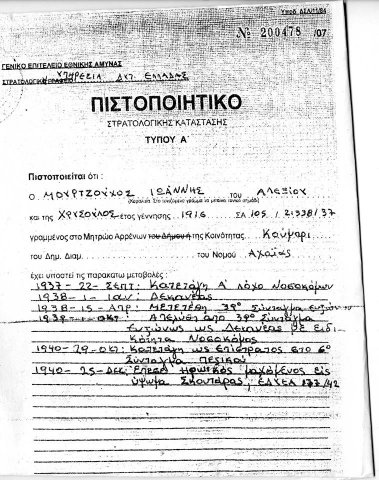 Υποδ. ΔΣΛ/11/84
№ 200478 /07
ΓΕΝΙΚΟ ΕΠΙΤΕΛΕΙΟ ΕΘΝΙΚΗΣ ΑΜΥΝΑΣ
ΣΤΡΑΤΟΛΟΓΙΚΟ ΓΡΑΦΕΙΟ ΥΠΗΡΕΣΙΑ ΔΥΤ. ΕΛΛΑΔΑΣ
ΠΙΣΤΟΠΟΙΗΤΙΚΟ
ΣΤΡΑΤΟΛΟΓΙΚΗΣ ΚΑΤΑΣΤΑΣΗΣ
ΤΥΠΟΥ Α΄
Πιστοποιείται ότι :
Ο ΜΟΥΡΤΖΟΥΧΟΣ ΙΩΑΝΝΗΣ του ΑΛΕΞΙΟΥ
και της ΧΡΥΣΟΥΛΑΣ έτος γέννησης 1916 ΣΑ 105 / 21338/37
γραμμένος στο Μητρώο Αρρένων του Δήμου ή της Κοινότητας Καύμαρι
του Δημ. Διαμ. του Νομού Αχαΐας
έχει υποστεί τις παρακάτω μεταβολές :
1937-22-Σεπτ: Κατετάγη Α΄ Λόχο Νοσοκόμων
1938-1-Ιαν: Δεκανέας
1938-15-ΑΠΡ: Μετετέθη 39° Σύνταγμα Ευζώνων
1939-1-Οκτ: Απελύθη από 39° Σύνταγμα
Ευζώνων ως Δεκανέας με Ειδι
κότητα Νοσοκόμος
1940-29-Οκτ: Κατετάγη ως Επίστρατος στο 6°
Σύνταγμα Πεζικού
1940-25-Δεκ: Έπεσε Ηρωικώς μαχόμενος εις
ύψωμα Σκουτάρας, ΕΔΥΕΑ 177/42